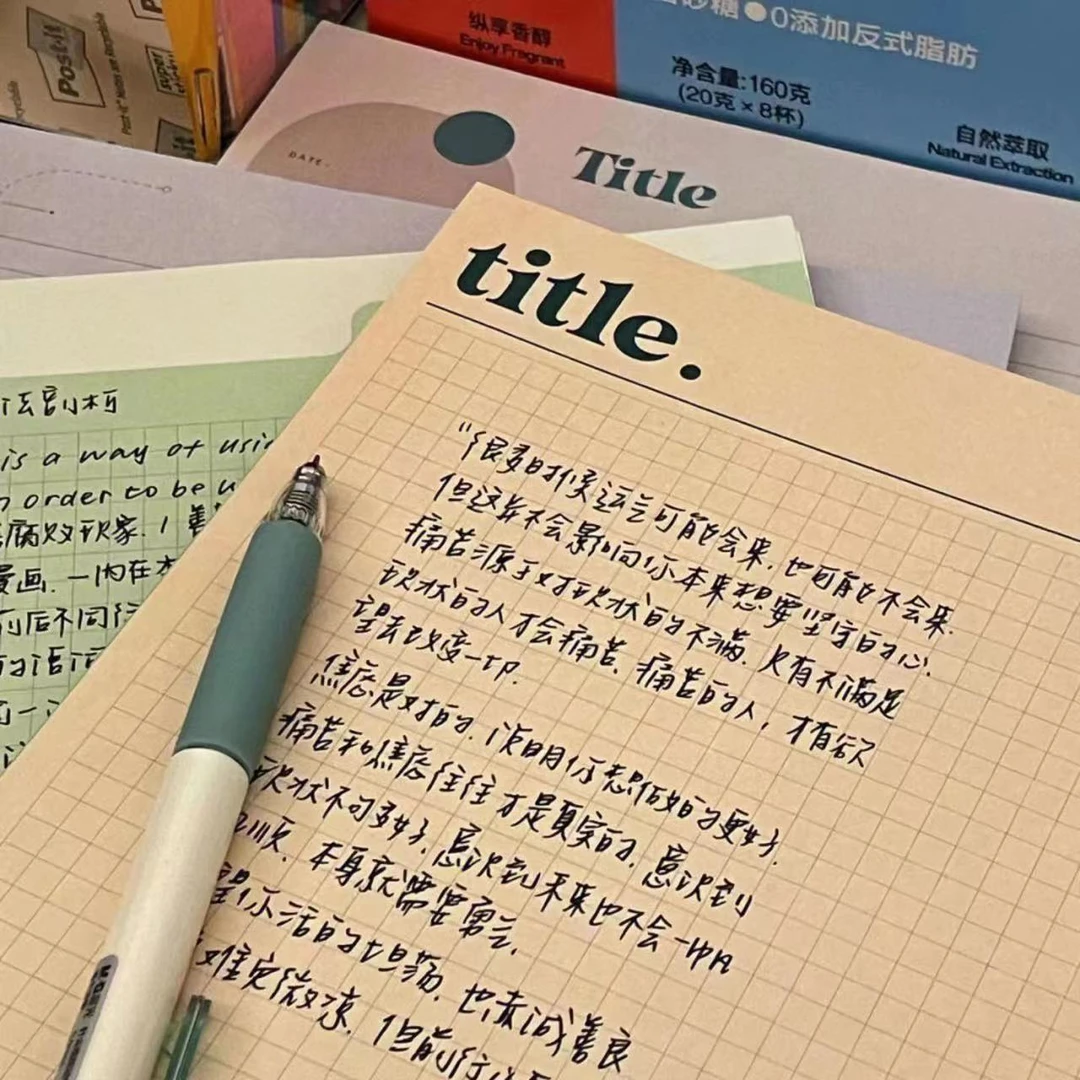 Post-it
super sticky
纵享香醇
Enjoy Fragrant
砂糖●0添加反式脂肪
净含量:160克
(20克×8杯)
自然萃取
Natural Extraction
DATE.
Title
title.
“很多时候运气可能会来,也可能不会来.
但这并不会影响你本来想要坚守的心.
痛苦源于对现状的不满.只有不满足
现状的人才会痛苦.痛苦的人,才有欲
望去改变一切.
焦虑是对的,说明你想做的更好.
痛苦和焦虑往往才是真实的.意识到
现状不可多好,意识到未来也不会一帆
风顺.本身就需要勇气.
望你活的坦荡.也赤诚善良
难免微凉.但前行
is a way of usin
order to be u
腐败现象.
漫画.一内在
前后不同行